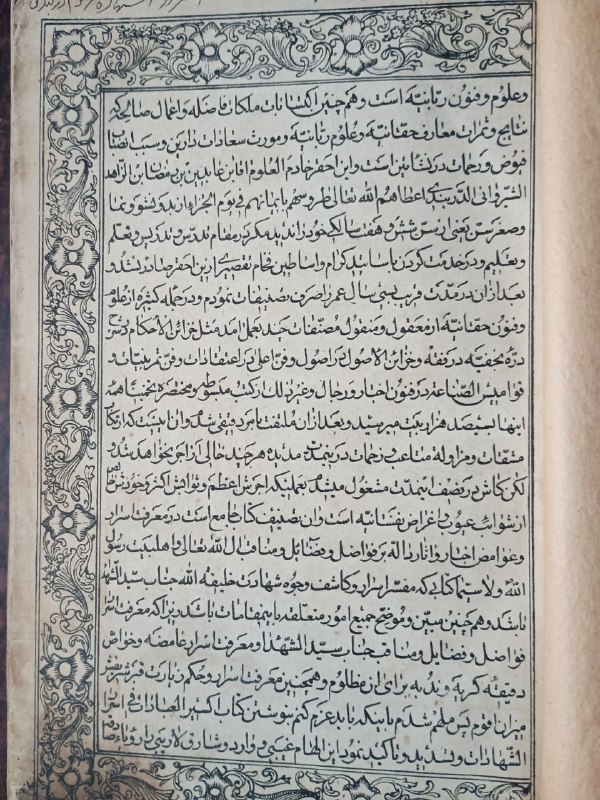 وعلوم وفنون ربانیّه است وهم چنین اکتسابات ملکات فاضله واعمال صالحه که
نتایج وثمرات معارف حقانیّه وعلوم ربانیّه ومورث سعادات دارین وسبب انصباب
فیوض ورحمات در نشأتین است واین احقر خادم العلوم اقا بن عابدین بن رمضان بن الزاهد
الشروانی الدربندی اعطاهم الله تعالی بایمانهم فی یوم الجزاء از بدو نشو ونما
وصغر سن یعنی از سن شش وهفت سالکی خود را ندیده مکر در مقام تدرس وتدریس وتعلّم
وتعلیم ودر خدمت کردن باساتید کرام واساطین فخام تقصیری از این احقر صادر نشد و
بعد از ان در مدّت قریب به سی سال عمر را صرف تصنیفات نمودم ودر جمله کثیره از علوم
وفنون حقانیّه از معقول ومنقول مصنّفات چند بعمل امد مثل خزائن الأحکام در شرح
درّه نجفیّه در فقه وخزائن الأصول در اصول وفن اعلی در اعتقادات وفن تمرینیات و
قوامیس الصّناعه در فنون اخبار ورجال وغیر ذلک از کتب مبسوطه ومختصره تخمیناً همه
اینها بسیصد هزار بیت میرسد وبعد از ان ملتفت بامر دقیقی شدم وان اینست که ارتکاب
مشقات ومزاوله متاعب وزحمات در اینمدت مدیده هر چند خالی از اجر نخواهد شد و
لکن کاش در نصف اینمدت مشغول میشدم بعملیکه اجرش اعظم وثوابش اکثر وخودش خالص
از شوائب عیوب واغراض نفسانیّه است وان تصنیف کتاب جامع است در معرفت اسرار
وغوامض اخبار واثار دالّه بر فواضل وفضائل ومناقب ال الله تعالی واهلبیت رسول
الله ولا سیّما کتابی که مفسّر اسرار وکاشف وجوه شهادت خلیفه الله جناب سیّد الشّهداء
باشد وهم چنین مبیّن وموضّح جمیع امور متعلقه باینمقامات باشد زیرا که معرفت اسرار
فواضل وفضایل ومناقب جناب سیّد الشّهدا ومعرفت اسرار غامضه وخواصّ
دقیقه کریه وندبه برای ان مظلوم وهمچنین معرفت اسرار وحکم زیارت قبر شریفش
میزان اقوم پس ملهم شدم باینکه باید عزم کنم بنوشتن کتاب اکسیر العبادات فی اسرار
الشّهادات وتسدید وتاکید نمود این الهام غیبی و وارد وشارق لاریبی را